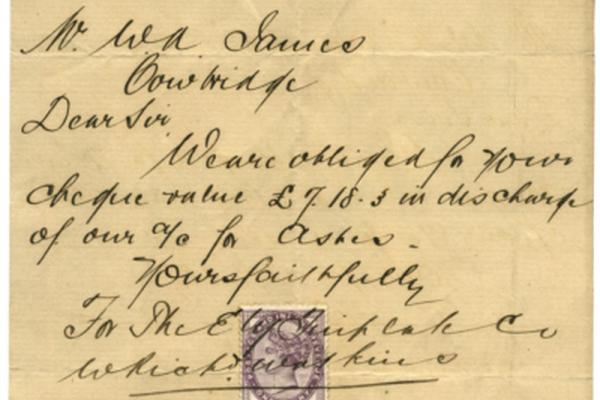 Mr. W. A. James
Cowbridge
Dear Sir
We are obliged for your
cheque value £7.18.3 in discharge
of our a/c for Ashes.
Yours faithfully
For The Ely Tinplate Co
Watkins